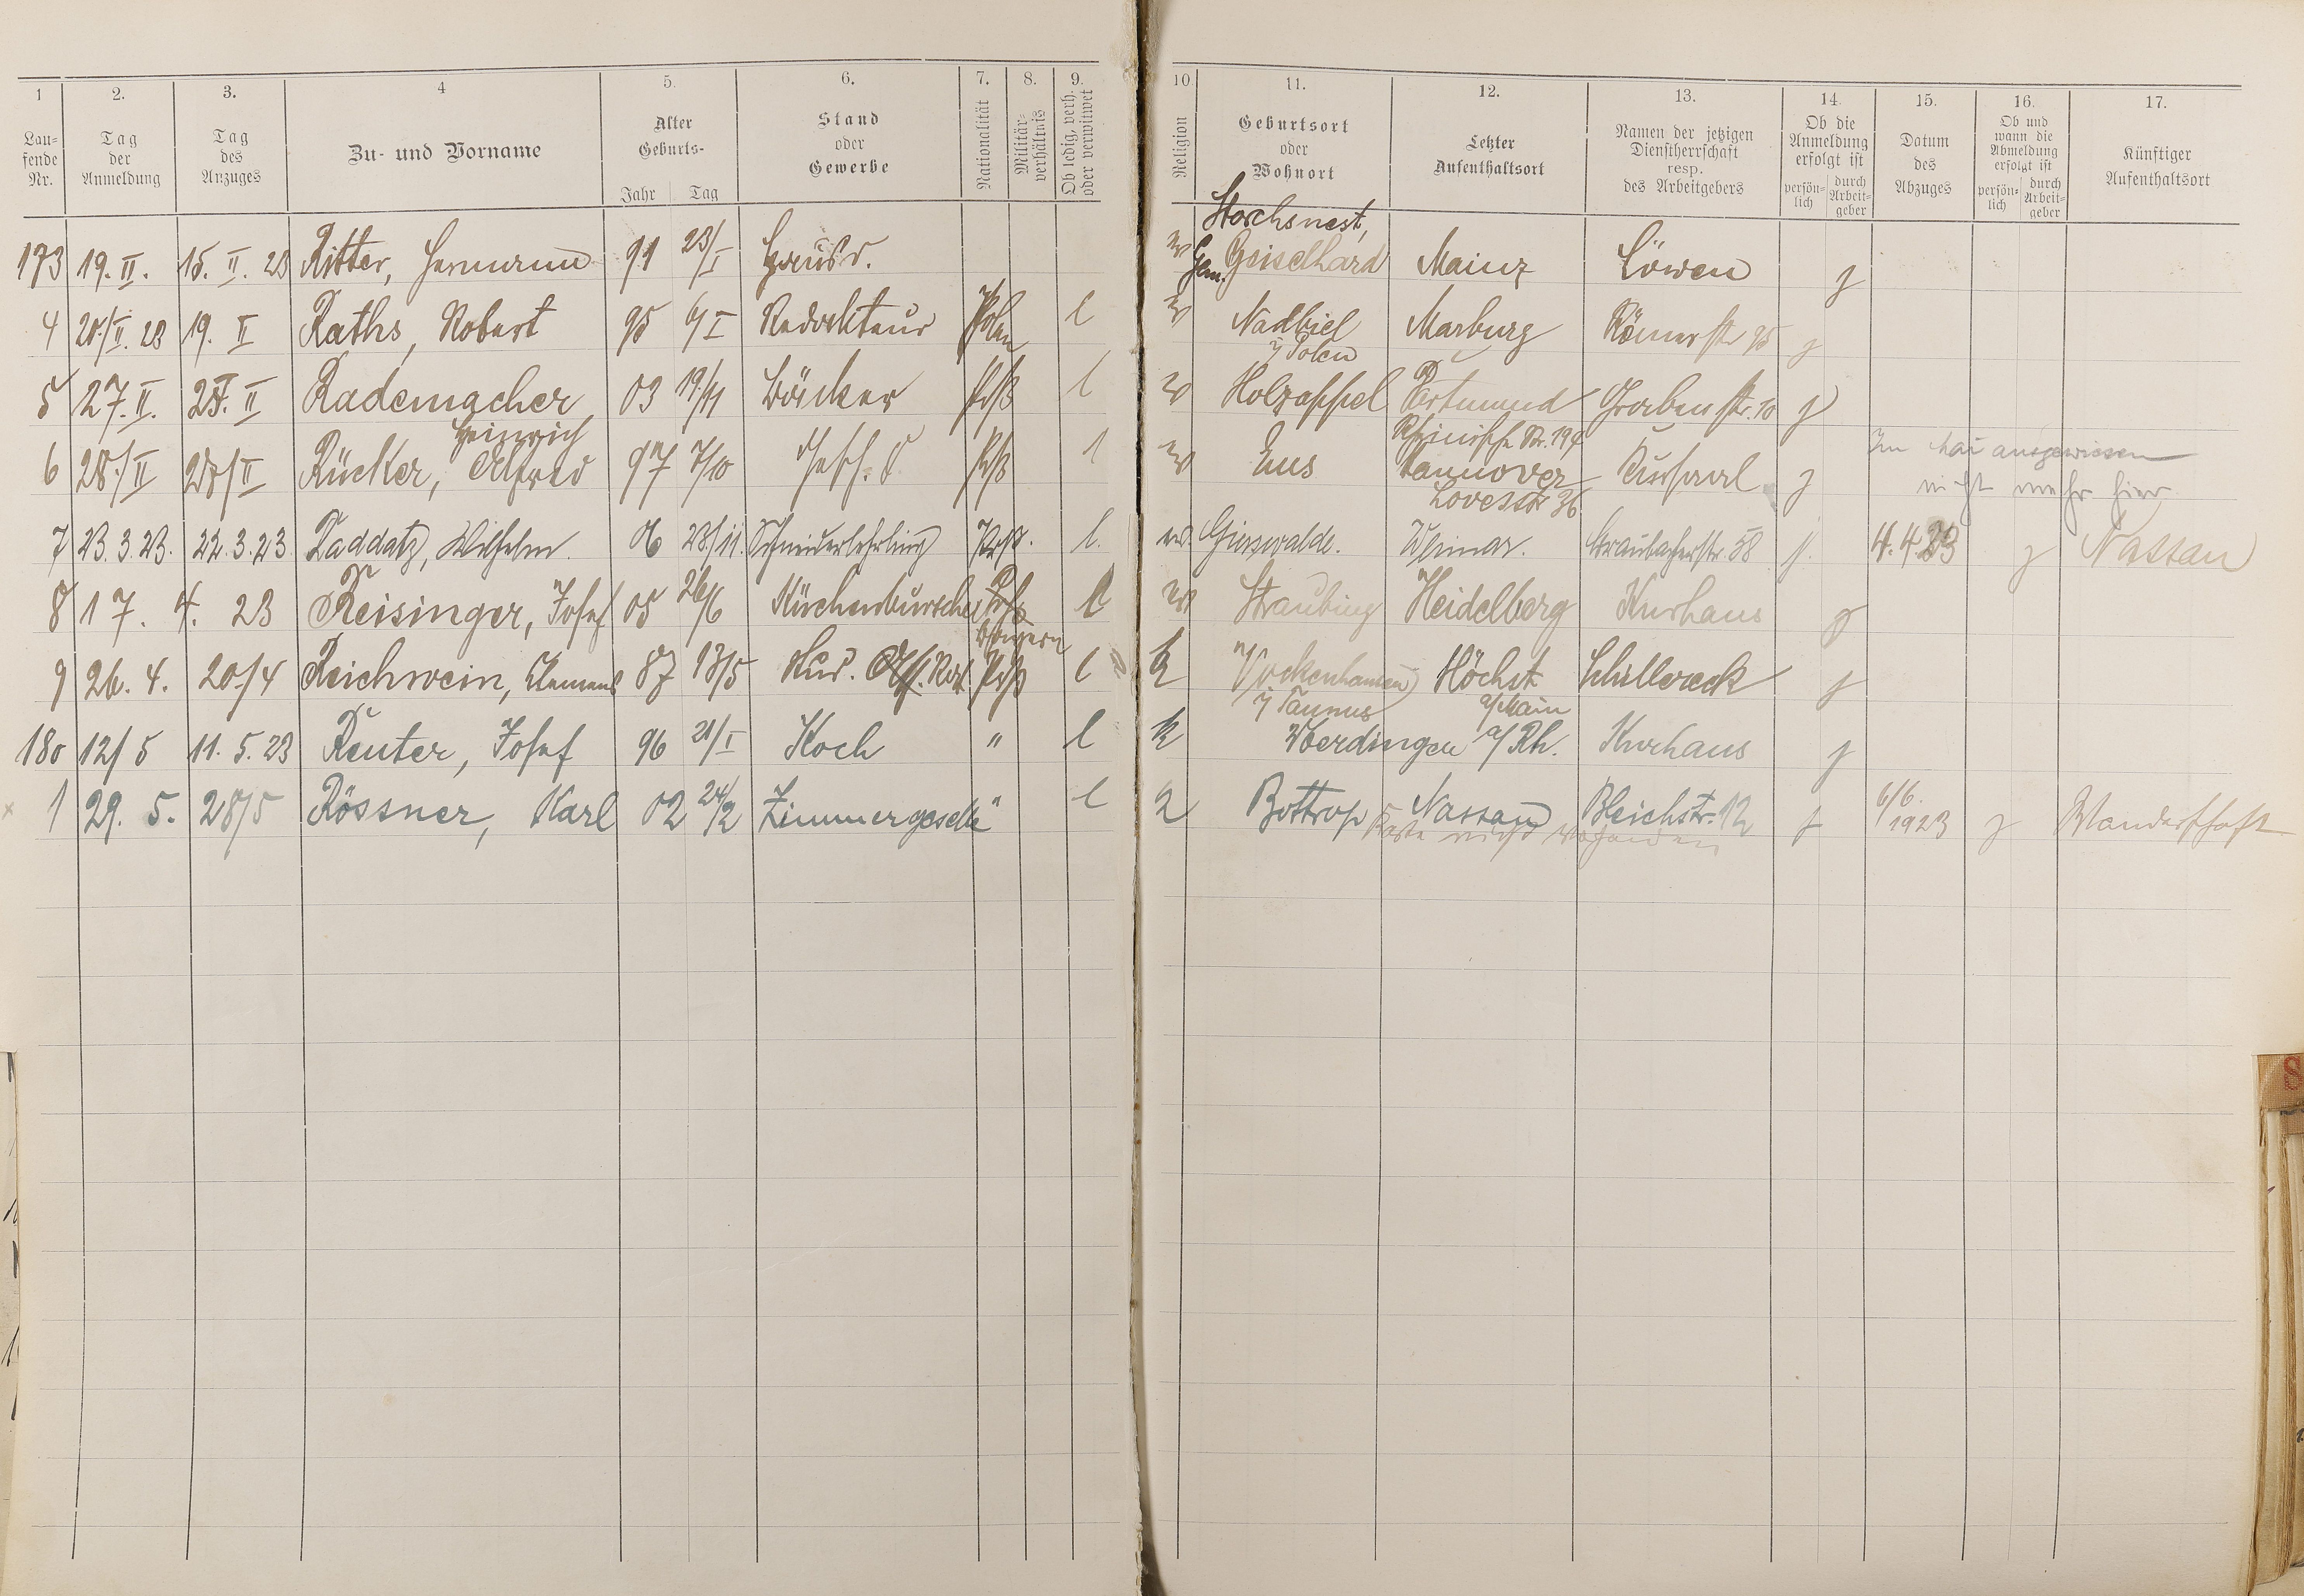 1 2. 3. 4 5. 6. 7. 8. 9. 10 11. 12. 13. 14. 15. 16. 17.
Lau-fende Nr. Tag der Anmeldung Tag des Anzuges Zu- und Vorname Alter Geburts- Jahr Tag Stand oder Gewerbe Nationalität Militär-verhältnis Ob ledig, verh. oder verwitwet Religion Geburtsort oder Wohnort Letzter Aufenthaltsort Namen der jetzigen Dienstherrschaft resp. des Arbeitgebers Ob die Anmeldung erfolgt ist persön-lich durch Arbeit-geber Datum des Abzuges Ob und wann die Abmeldung erfolgt ist persön-lich durch Arbeit-geber Künftiger Aufenthaltsort
Storchsnest,
173 19. II. 15. II. 23 Ritter, Hermann 91 23/I Hausd. Gem. Geiselhard Mainz Löwen j
4 20./II. 23 19. II Raths, Robert 95 6/I Redakteur Polen l Marburg Römerstr 95 j
i/ Polen
5 27. II. 25. II Rademacher, 03 19/11 Bäcker Prß l Holzappel Dortmund Grabenstr. 10 j
Heinrich Rheinische Str. 194
6 28./II 28/II Rücker, Alfred 97 7/10 Prß l Ems Hannover Kursaal j Im Mai ausgewiesen
Lovesstr 36 nicht mehr hier
7 23.3.23. 22.3.23 Raddatz, Wilhelm. 06 23./11. Schneiderlehrling Prß. l. ev. Weimar. Braubacherstr. 58 j. 4.4.23 j Nassau
8 17. 4. 23 Reisinger, Josef 05 26/6 Küchenbursche Prß l Straubing Heidelberg Kurhaus j
Bayern
9 26. 4. 20/4 Reichwein, Clemens 87 13/5 Prß l k Vockenhausen Höchst Schillereck j
i/ Taunus a/Main
180 12/5 11. 5. 23 Reuter, Josef 96 21/I Koch " l k Uerdingen a/Rh. Kurhaus j
x 1 29. 5. 28/5 Rössner, Karl 02 24/2 Zimmergeselle " l k Bottrop Nassau Bleichstr. 12 j 6/6. 1923 j Wanderschaft
Karte nicht vorhanden